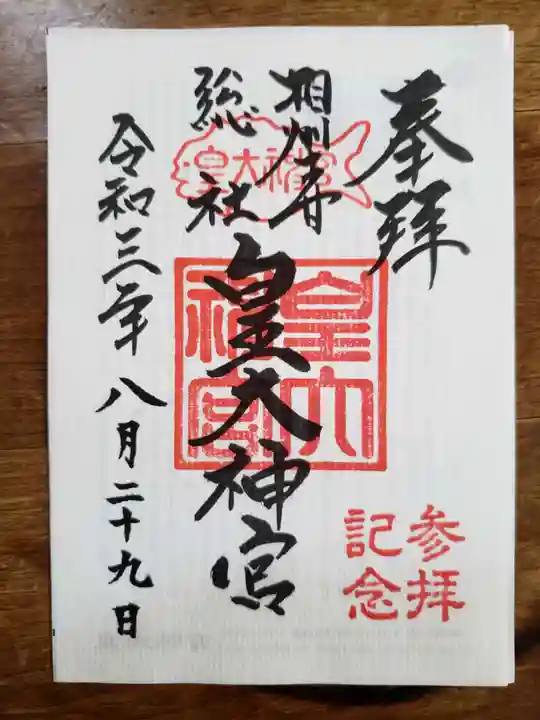 奉拝
相州一ノ宮
総社
皇大神宮
令和三年八月二十九日
皇大神宮
皇大
神宮
参拝
記念